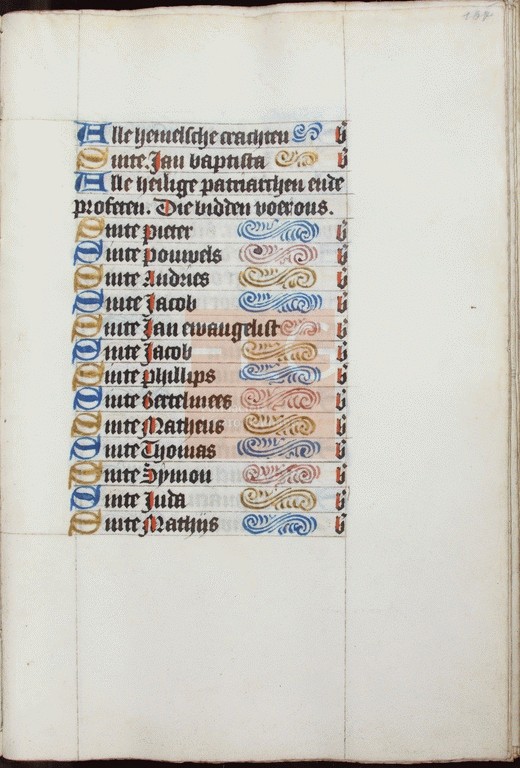 Alle hemelsche crachten b
Sinte Jan baptista b
Alle heilige patriarchen ende
profeten. Die bidden voer ons.
Sinte pieter b
Sinte pouwels b
Sinte Andries b
Sinte Jacob b
Sinte Jan ewangelist b
Sinte Jacob b
Sinte phillips b
Sinte Bertelmees b
Sinte Matheus b
Sinte Thomas b
Sinte Symon b
Sinte Juda b
Sinte Mathijs b